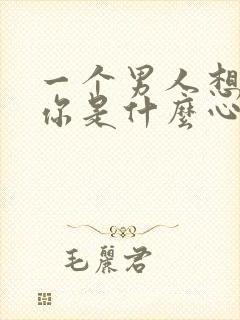 一个男人想
你是什麼心
毛麗君